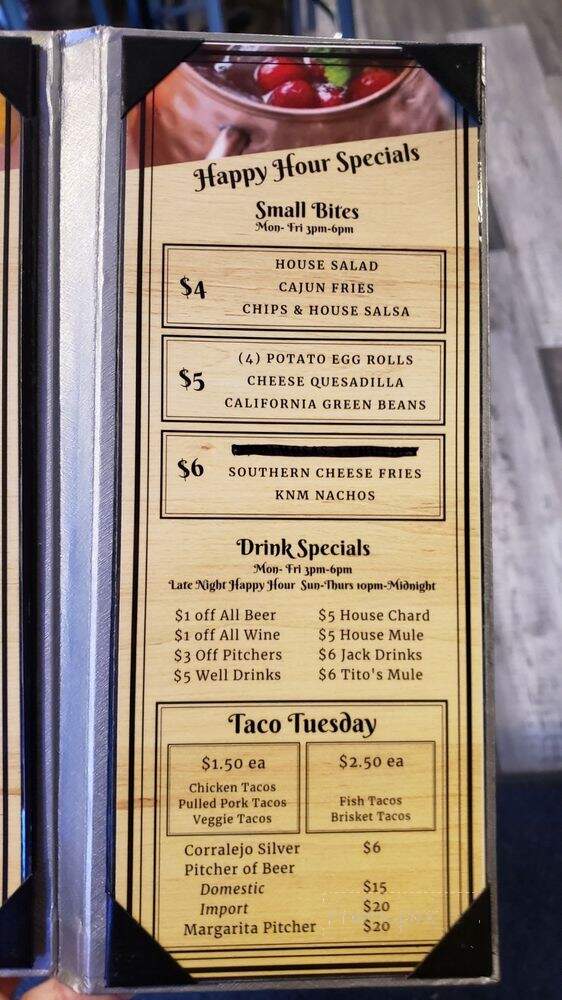 Happy Hour Specials
Small Bites
Mon- Fri 3pm-6pm
$4
HOUSE SALAD
CAJUN FRIES
CHIPS & HOUSE SALSA
$5
(4) POTATO EGG ROLLS
CHEESE QUESADILLA
CALIFORNIA GREEN BEANS
$6
SOUTHERN CHEESE FRIES
KNM NACHOS
Drink Specials
Mon- Fri 3pm-6pm
Late Night Happy Hour Sun-Thurs 10pm-Midnight
$1 off All Beer
$1 off All Wine
$3 Off Pitchers
$5 Well Drinks
$5 House Chard
$5 House Mule
$6 Jack Drinks
$6 Tito's Mule
Taco Tuesday
$1.50 ea
Chicken Tacos
Pulled Pork Tacos
Veggie Tacos
$2.50 ea
Fish Tacos
Brisket Tacos
Corralejo Silver $6
Pitcher of Beer
Domestic $15
Import $20
Margarita Pitcher $20